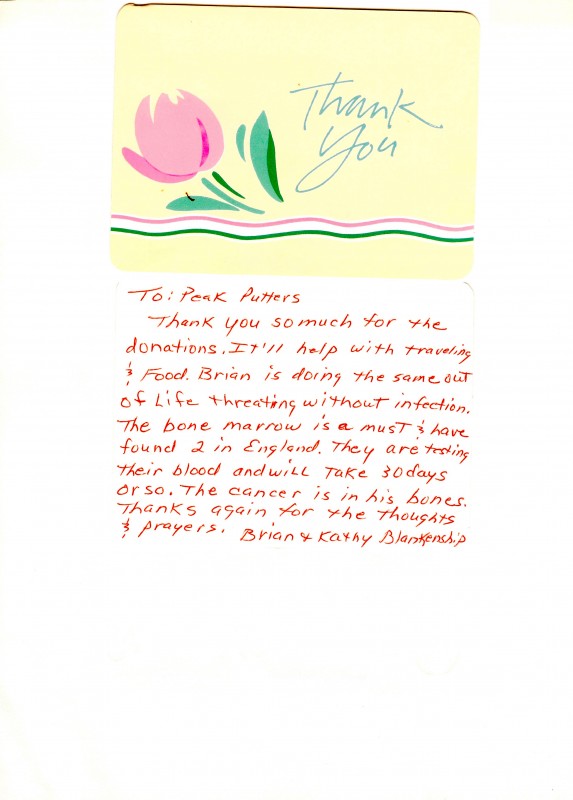 Thank
You
To: Peak Putters
Thank you so much for the
donations. It'll help with traveling
& Food. Brian is doing the same out
of Life threating without infection.
The bone marrow is a must & have
found 2 in England. They are testing
their blood and will Take 30 days
or so. The cancer is in his bones.
Thanks again for the thoughts
& prayers. Brian & Kathy Blankenship